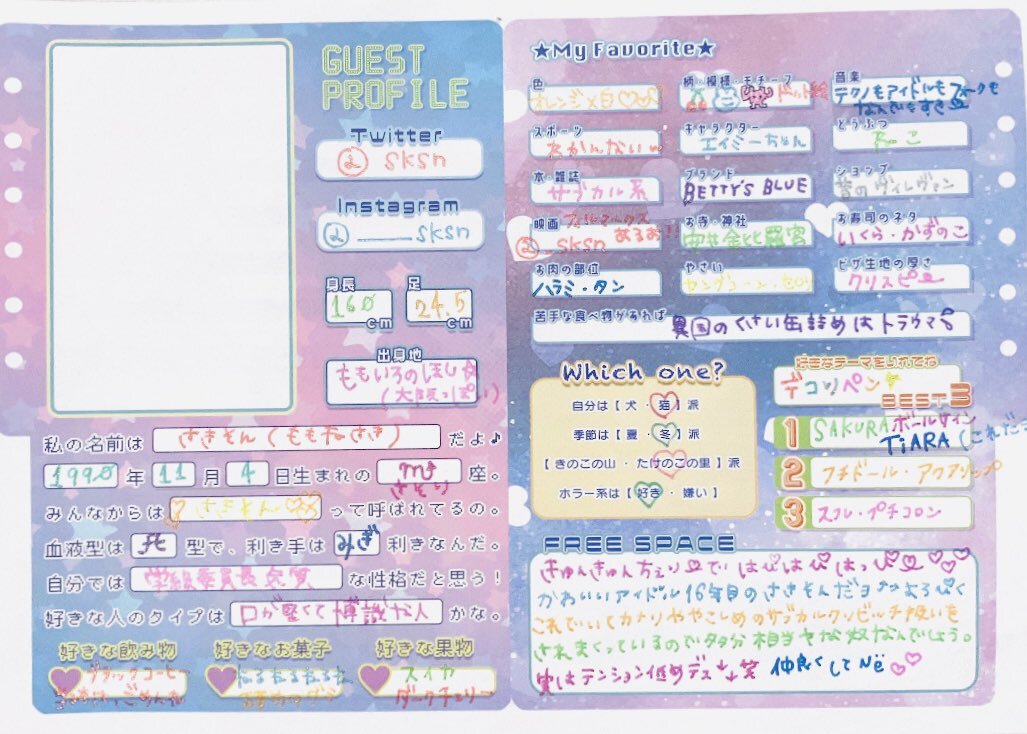 GUEST
PROFILE
Twitter
@ sksn
Instagram
@ ____ sksn
身長
160 cm
足
24.5 cm
出身地
ももいろのほし
(大阪っぽい)
私の名前は さきそん(ももねさき) だよ♪
1990 年 11 月 4 日生まれの さそり 座。
みんなからは さきそん って呼ばれてるの。
血液型は 型で、利き手は みぎ 利きなんだ。
自分では 学級委員長気質 な性格だと思う!
好きな人のタイプは 口が堅くて博識な人 かな。
好きな飲み物
ブラックコーヒー
ごめんね
好きなお菓子
ねるねるねるね
好きな果物
スイカ
ダークチェリー
★My Favorite★
色
オレンジ×白
柄・模様・モチーフ
ドット絵
音楽
テクノもアイドルもフォークも
なんでもすき
スポーツ
わかんないw
キャラクター
エイミーちゃん
どうぶつ
ねこ
本・雑誌
サブカル系
ブランド
BETTY'S BLUE
ショップ
昔のヴィレヴァン
映画
@_sksn
お寺・神社
安井金比羅宮
お寿司のネタ
いくら・かずのこ
お肉の部位
ハラミ・タン
やさい
ヤングコーン・セロリ
ピザ生地の厚さ
クリスピー
苦手な食べ物があれば
異国のくさい缶詰めはトラウマ
Which one?
自分は【 犬 ・ 猫 】派
季節は【 夏 ・ 冬 】派
【 きのこの山 ・ たけのこの里 】派
ホラー系は【 好き ・ 嫌い 】
好きなテーマをいれてね
デコリペン
BEST3
1 SAKURA ボールサイン
TiARA (これだ
2 フチドール・アクアリップ
3 スフレ・プチコロン
FREE SPACE
きゅんきゅんちぇりーでぃ はぴはぴはっぴー
かわいいアイドル16年目のさきそんだヨ よろぴく
これでいてかなりややこしめのサブカルクソビッチ扱いを
されまくっているので多分相当ヤな奴なんでしょう。
実はテンション低めデス↓笑 仲良くしてNë